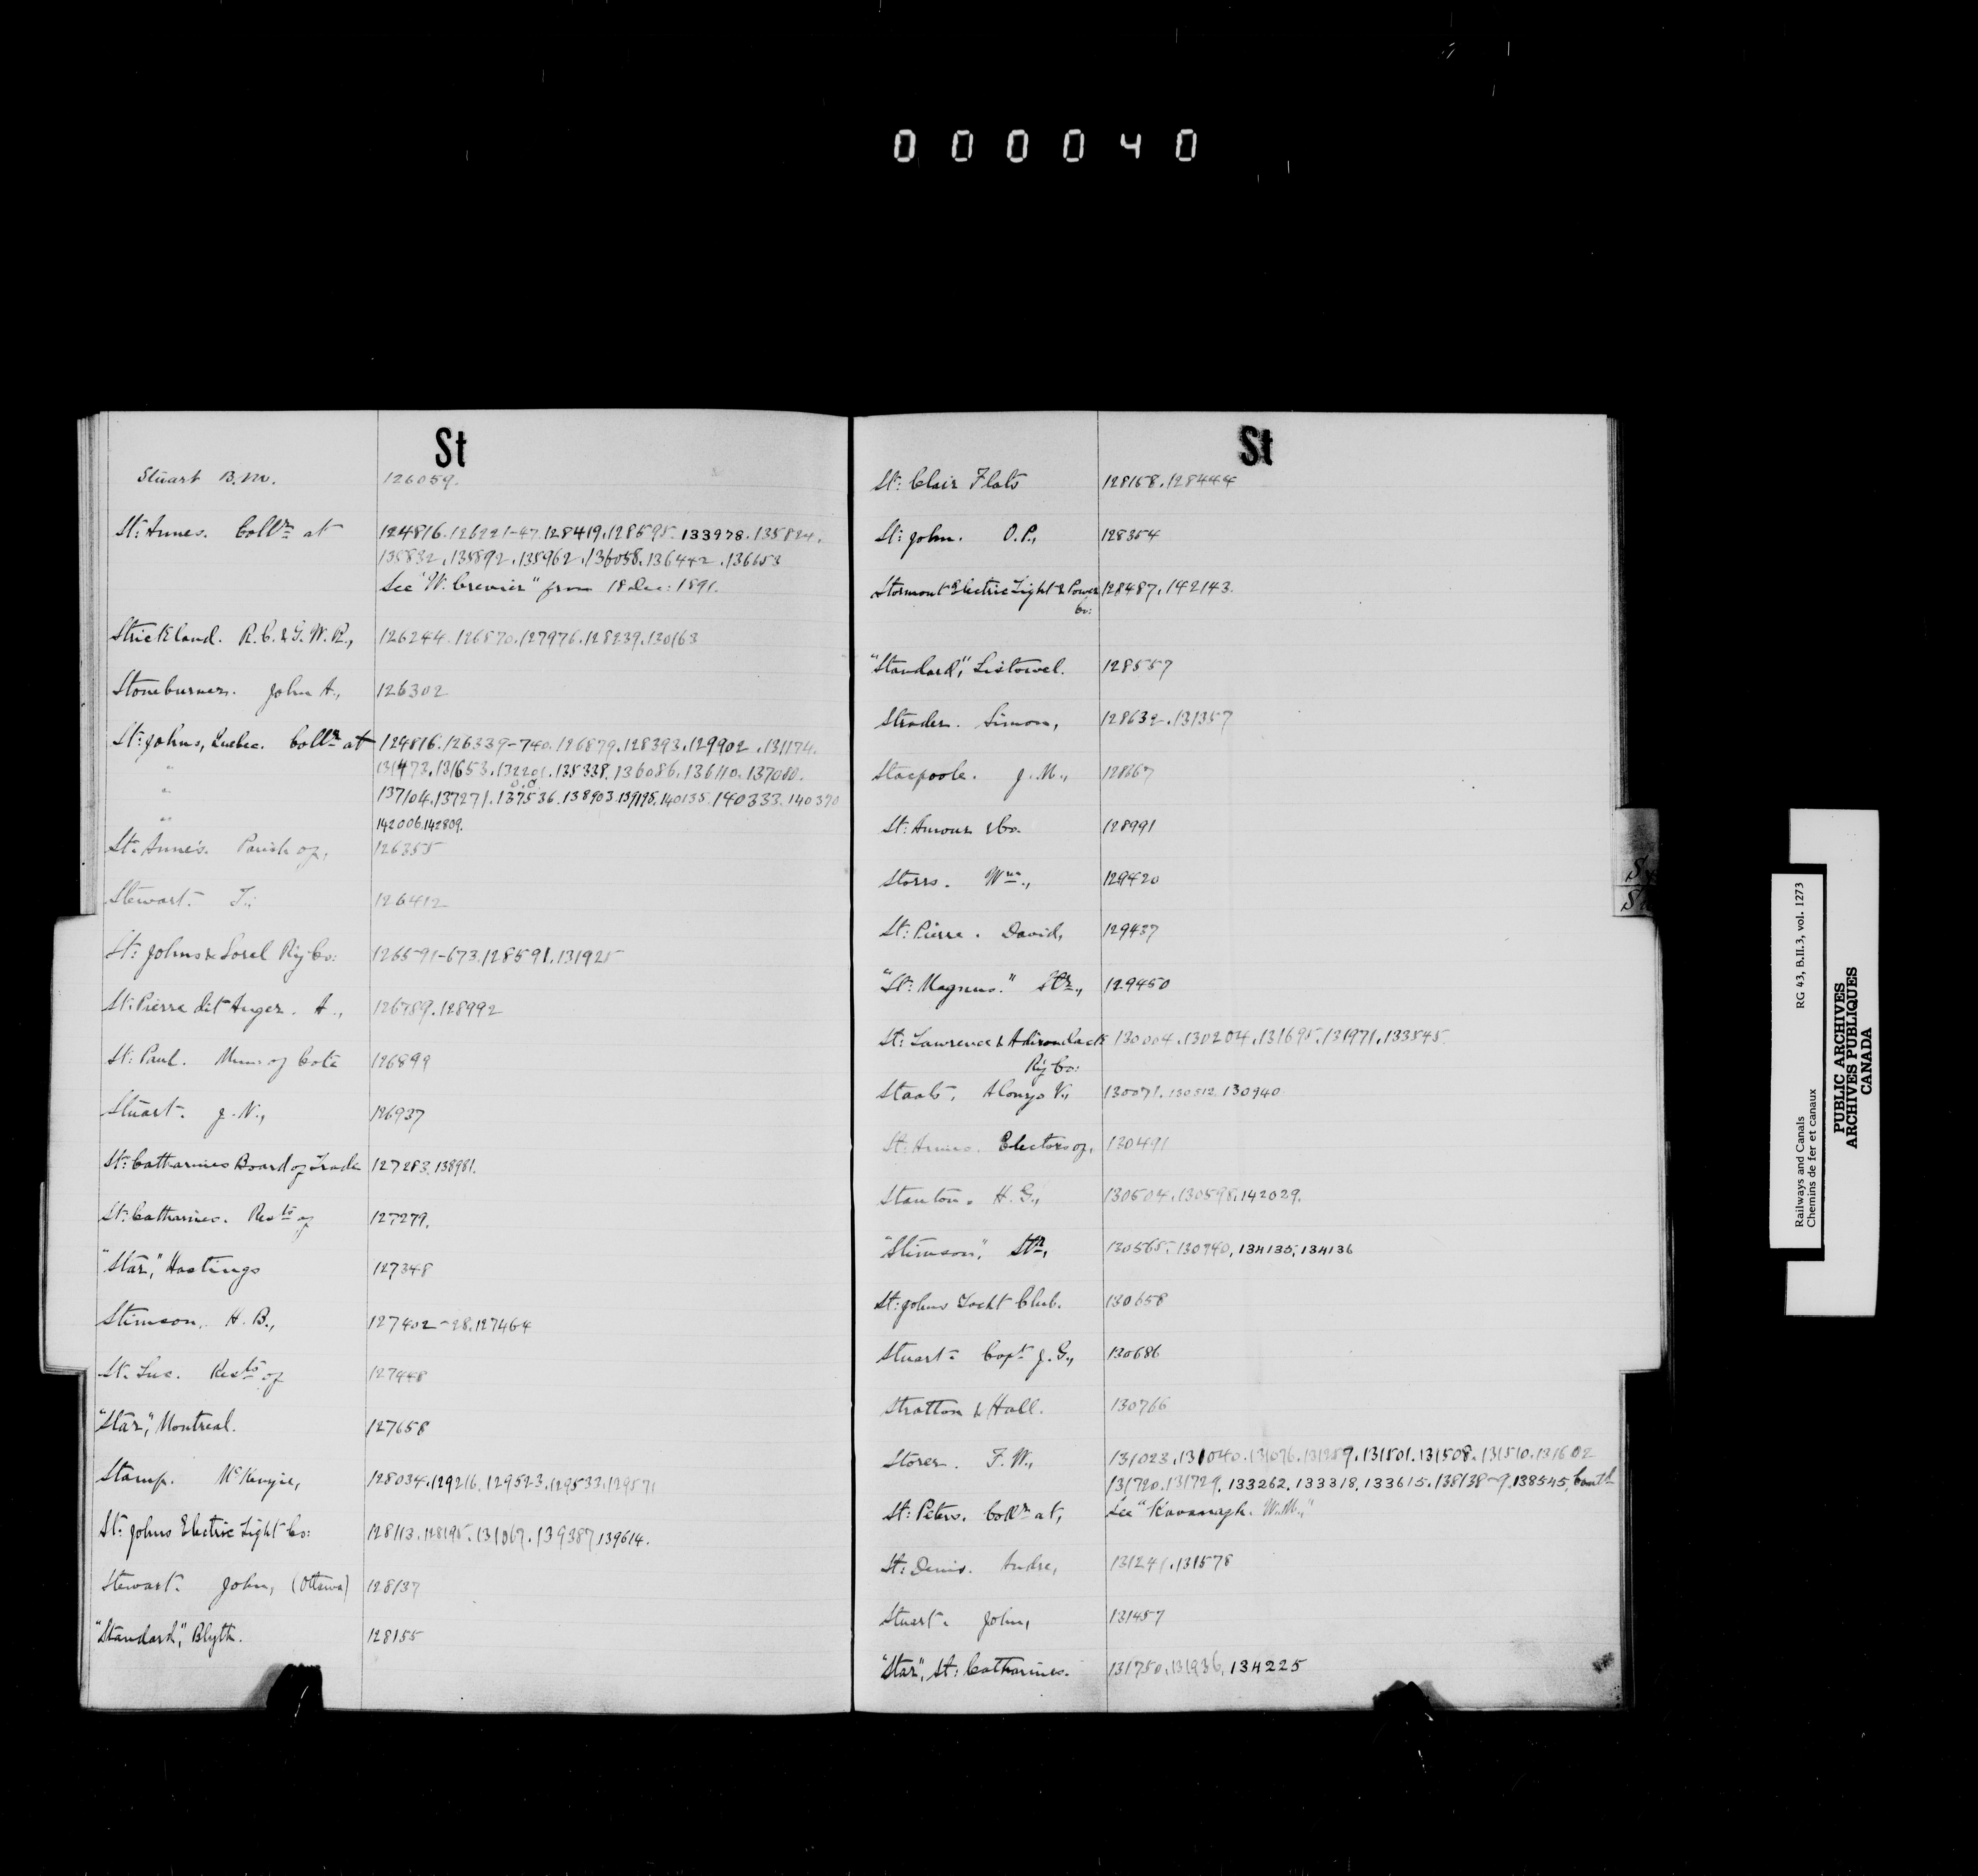 000040
St
Stuart B.M. 126059.
St: Annes. Collr at 124816.126221-47.128419.128595.133978.135824.
135832.135892.135962.136058.136442.136653
See "W. Crevier" from 18 Dec: 1891.
Strickland. R.C. & G.W.R., 126244.126870.127976.128239.130163
Stoneburner. John A., 126302
St: Johns, Quebec. Collr at 124816.126339-740.126879.128393.129902.131174.
" 131473.131653.132201.135338.136086.136110.137080.
" 137104.137271.137536.138903.139195.140135.140333.140370
" 142006.142809.
St. Anne's. Parish of, 126355
Stewart. T., 126412
St: Johns & Sorel Ry Co: 126591-673.128591.131925
St: Pierre dit Anger. A., 126789.128992
St: Paul. Mun: of Cote 126899
Stuart. J.N., 126937
St: Catharines Board of Trade 127283.138981.
St: Catharines. Resdts of 127279.
"Star," Hastings 127348
Stimson, H.B., 127402-28.127464
St. Luc. Resdts of 127448
"Star," Montreal. 127658
Stamp. McKenzie, 128034.129216.129523.129533.129571
St: Johns Electric Light Co: 128113.128195.131067.139387.139614.
Stewart. John, (Ottawa) 128137
"Standard," Blyth. 128155
St
St: Clair Flats 128158.128444
St: John. O.P., 128354
Stormont Electric Light & Power 128487.142143.
Co:
"Standard," Listowel. 128557
Strader. Simon, 128632.131357
Stacpoole. J.M., 128667
St: Amour & Co. 128991
Storrs. Wm., 129420
St: Pierre. David, 129437
"St: Magnus." Str., 129450
St: Lawrence & Adirondack 130004.130204.131695.131971.133545
Ry Co:
Staats. Alonzo V., 130071.130512.130940
St: Annes. Electors of, 130491
Stanton. H.G., 130504.130598.142029.
"Stimson," Str, 130565.130740.134135.134136
St: Johns Yacht Club. 130658
Stuart. Capt J.G., 130686
Stratton & Hall. 130766
Storer. F.W., 131023.131040.131076.131259.131501.131508.131510.131602
131720.131729.133262.133318.133615.138138-9.138545. Contd
St: Peters. Collr at, See "Kavanagh. W.M.,"
St: Denis. Andre, 131241.131578
Stuart. John, 131457
"Star," St: Catharines. 131750.131936.134225
S
Railways and Canals RG 43, B.II.3, vol. 1273
Chemins de fer et canaux
PUBLIC ARCHIVES
ARCHIVES PUBLIQUES
CANADA